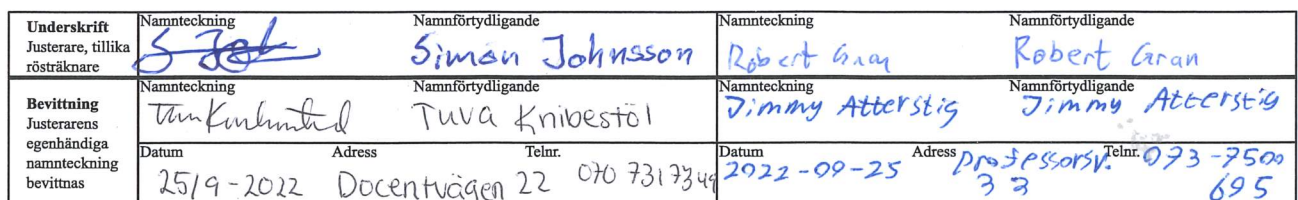 Underskrift
Justerare, tillika
rösträknare
Namnteckning
Namnförtydligande
Simon Johnsson
Namnteckning
Robert Gran
Namnförtydligande
Robert Gran
Bevittning
Justerarens
egenhändiga
namnteckning
bevittnas
Namnteckning
Namnförtydligande
Tuva Knibestöl
Namnteckning
Jimmy Atterstig
Namnförtydligande
Jimmy Atterstig
Datum
25/9-2022
Adress
Docentvägen 22
Telnr.
070 7317349
Datum
2022-09-25
Adress
Professorsv.
33
Telnr.
073-7500
695